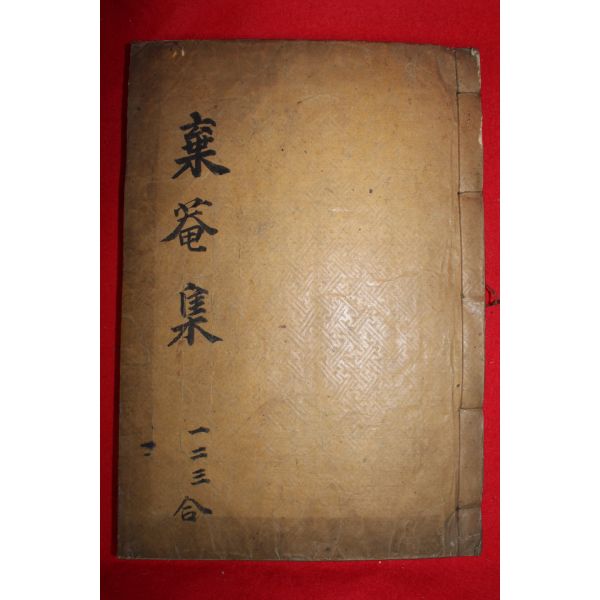 棄菴集
一二三合